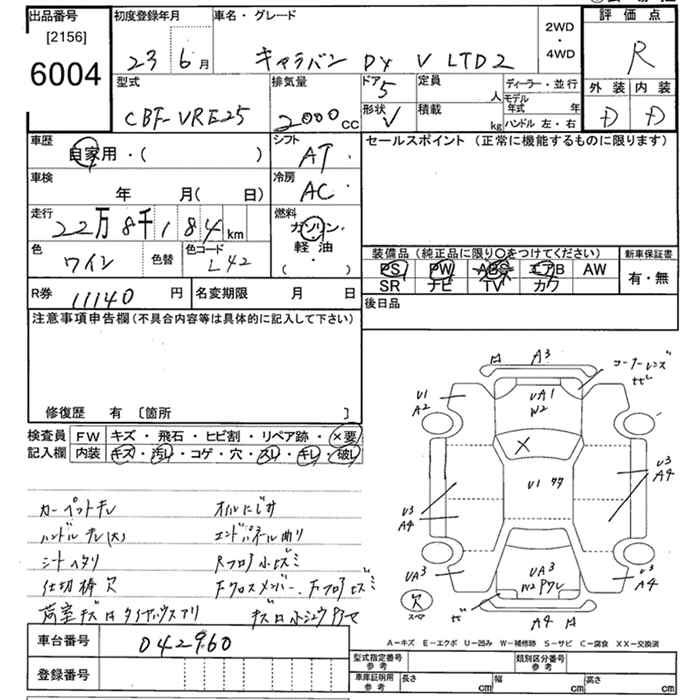 出品番号 初度登録年月 車名・グレード 2WD・4WD 評価点
[2156]
6004 23 6月 キャラバン DX V LTD2 R
型式 排気量 ドア 定員 ディーラー・並行 外装 内装
CBF-VRE25 2000cc 5 人 モデル年式 年 D D
形状 V 積載 kg ハンドル 左・右
車歴 シフト セールスポイント (正常に機能するものに限ります)
自家用・( ) AT
車検 冷房
年 月( 日) AC
走行 燃料
22万8千184km ガソリン・軽油・( )
色 色替 色コード 装備品 (純正品に限り○をつけてください) 新車保証書
ワイン L42 PS PW ABS エアB AW 有・無
SR ナビ TV カワ
R券 11140円 名変期限 月 日 後日品
注意事項申告欄 (不具合内容等は具体的に記入して下さい)
修復歴 有 [箇所 ]
検査員 FW キズ・飛石・ヒビ割・リペア跡・×要
記入欄 内装 キズ・汚レ・コゲ・穴・スレ・キレ・破レ
A3
コーナーレンズ
U1 A2
UA1 W2
U3 A4
U1 44
U3 A4
UA3
UA3
A4
欠
スペア
A4
カーペットキレ オイルにじみ
ハンドルキレ(大) エンドパネル曲り
シートヘタリ Rフロア小ヒズミ
仕切棒欠 Fクロスメンバー、Fフロアヒズミ
車台番号 042960
A-キズ E-エクボ U-凹み W-補修跡 S-サビ C-腐食 XX-交換済
登録番号
型式指定番号 参考 類別区分番号 参考
車庫証明用 参考 長さ cm 幅 cm 高さ cm